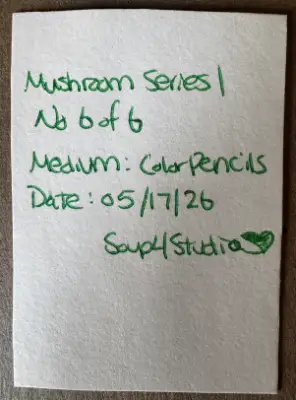 Mushroom Series 1
No 6 of 6
Medium: Color Pencils
Date: 05/17/26
Soup4Studio